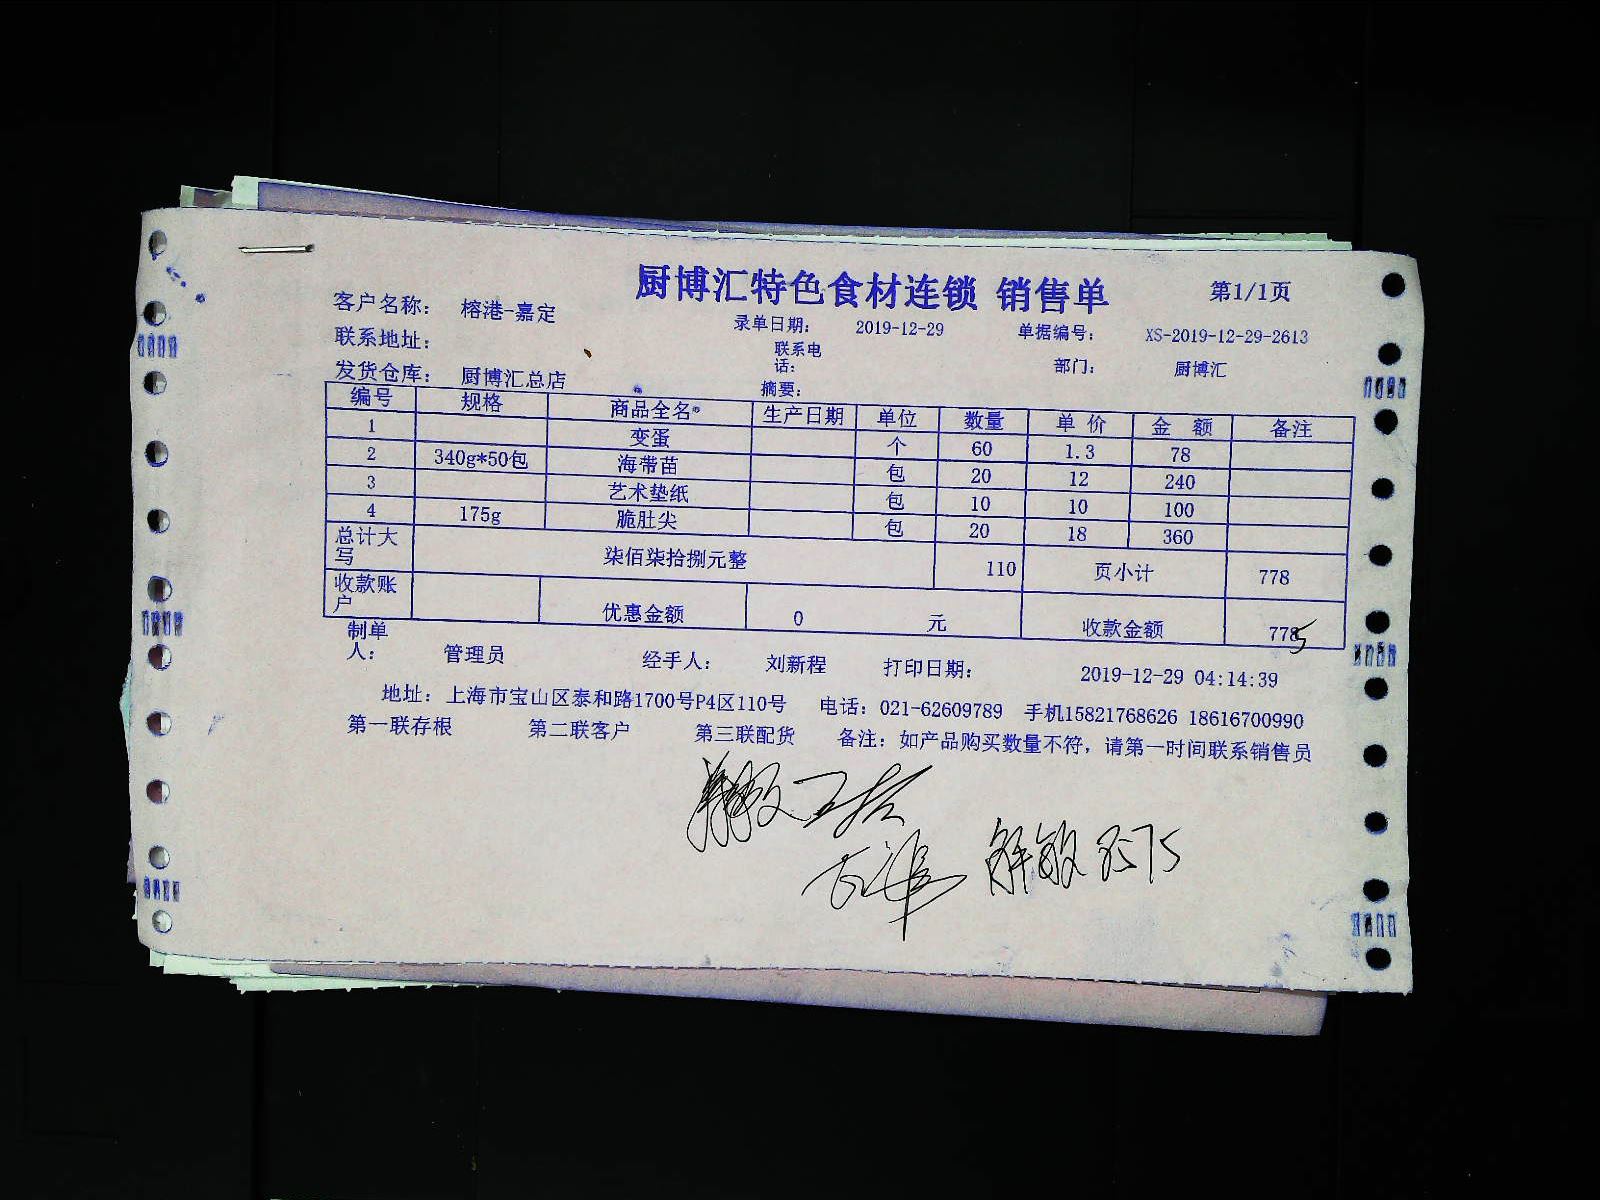 厨博汇特色食材连锁 销售单 第1/1页
客户名称： 榕港-嘉定 录单日期： 2019-12-29 单据编号： XS-2019-12-29-2613
联系地址： 联系电话： 部门： 厨博汇
发货仓库： 厨博汇总店 摘要：
编号 规格 商品全名 生产日期 单位 数量 单 价 金 额 备注
1 变蛋 个 60 1.3 78
2 340g*50包 海带苗 包 20 12 240
3 艺术垫纸 包 10 10 100
4 175g 脆肚尖 包 20 18 360
总计大写 柒佰柒拾捌元整 110 页小计 778
收款账户 优惠金额 0 元 收款金额 778
制单人： 管理员 经手人： 刘新程 打印日期： 2019-12-29 04:14:39
地址：上海市宝山区泰和路1700号P4区110号 电话：021-62609789 手机15821768626 18616700990
第一联存根 第二联客户 第三联配货 备注：如产品购买数量不符，请第一时间联系销售员